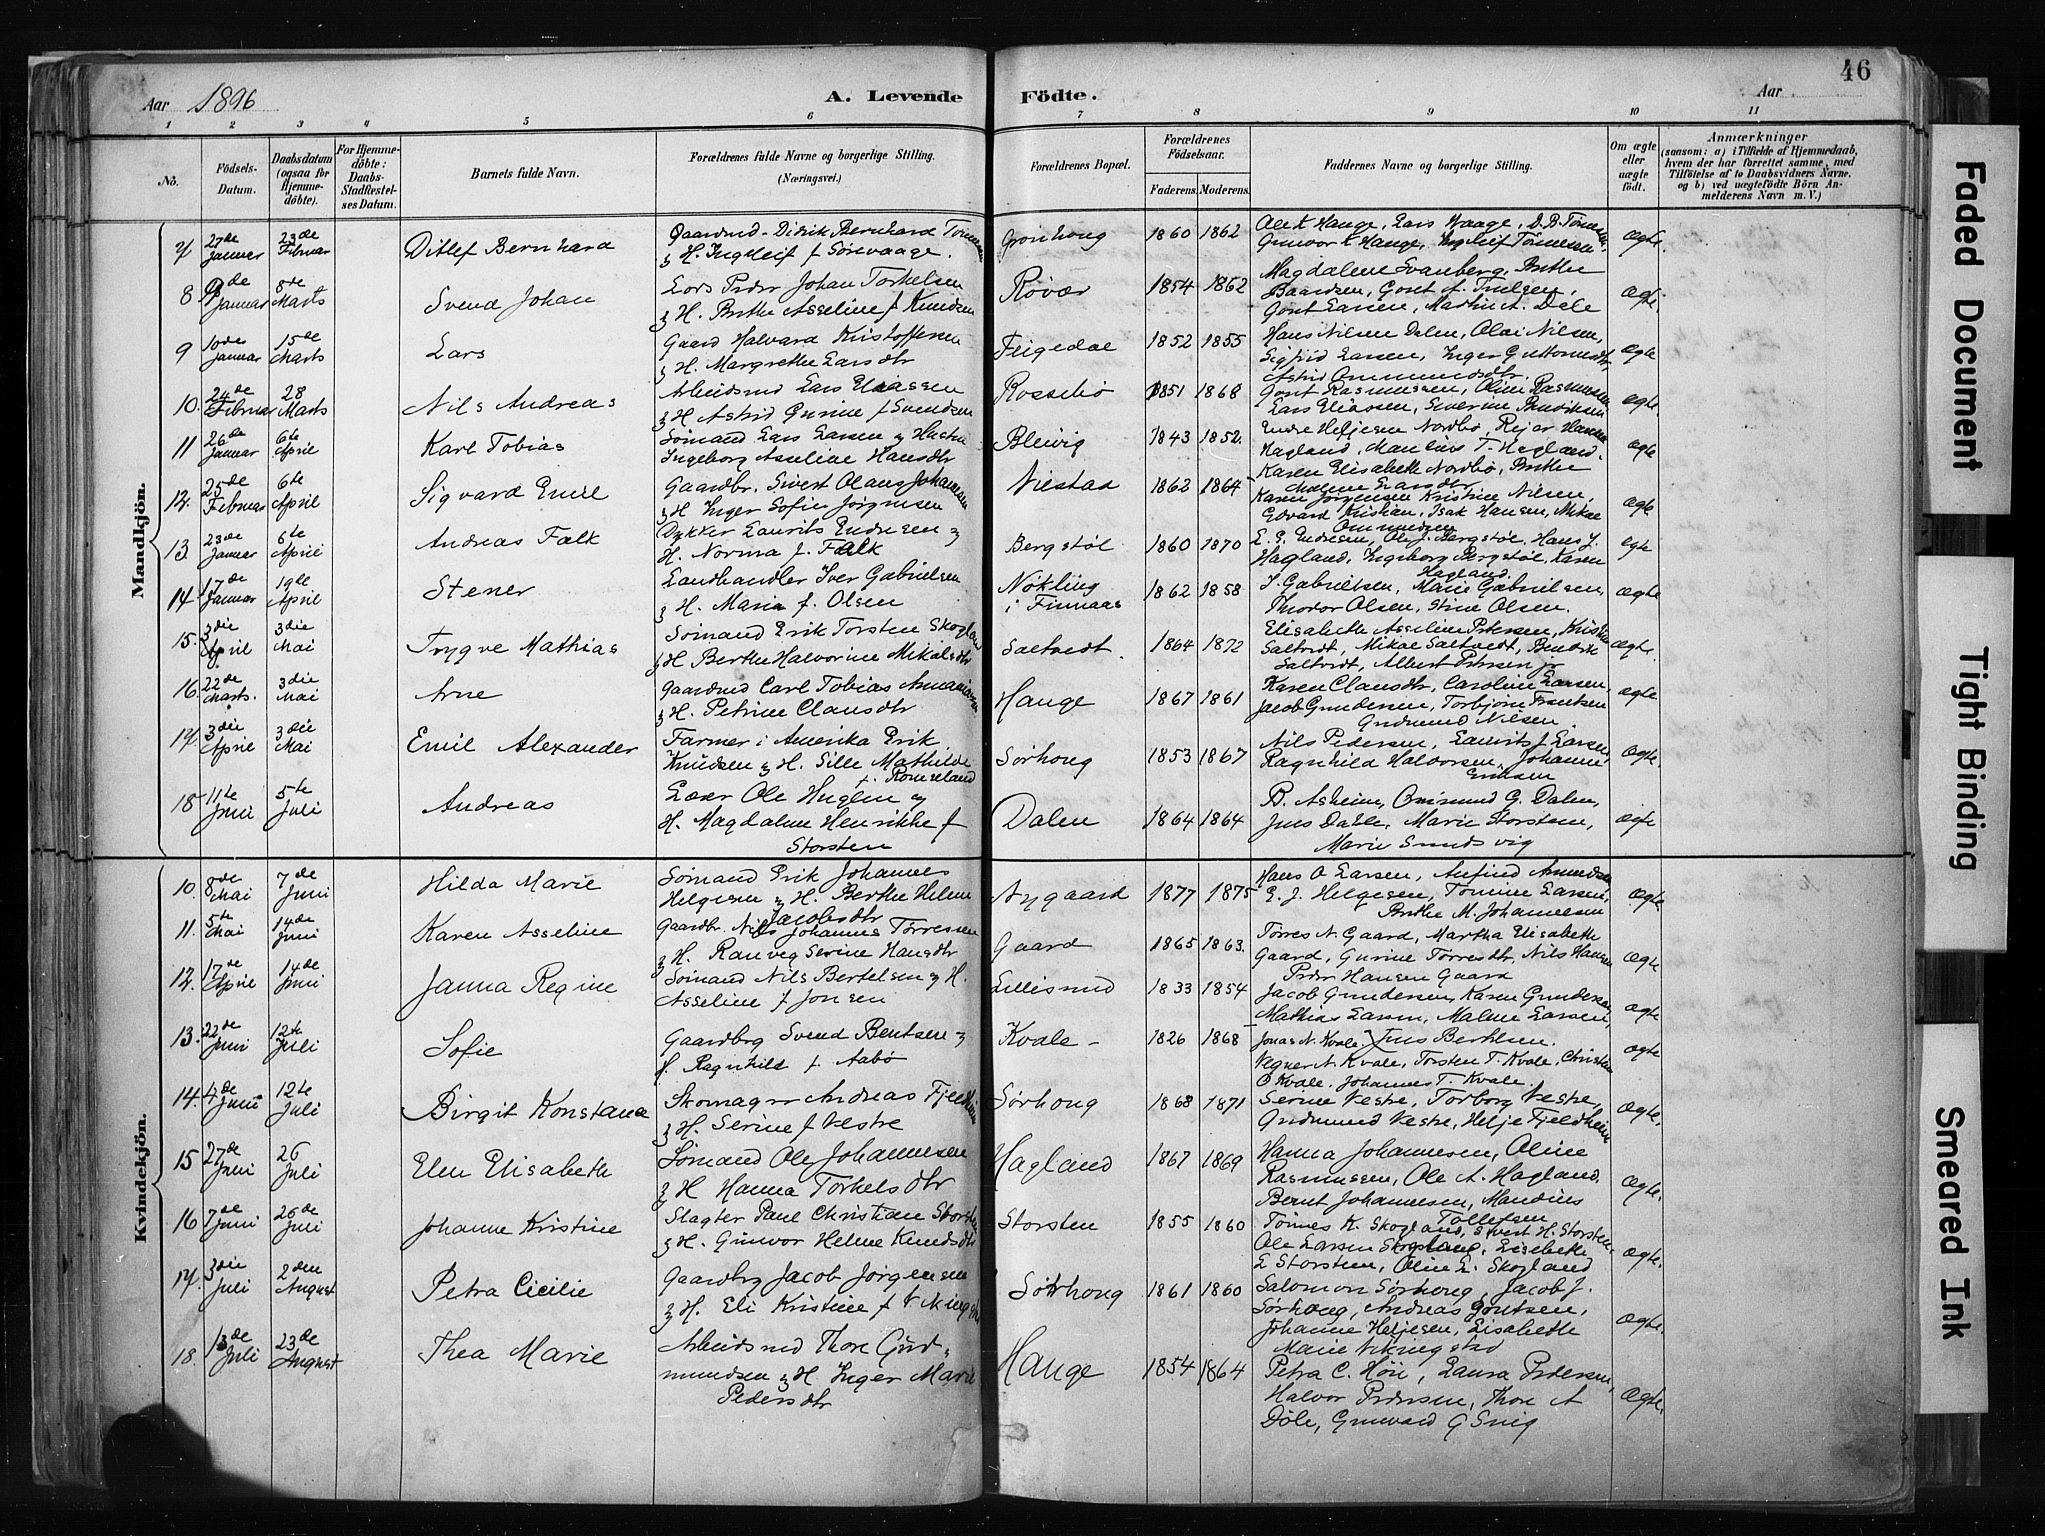 46
Aar 1896 A. Levende Födte. Aar
1 2 3 4 5 6 7 8 9 10 11
No. Födsels-Datum. Daabsdatum (ogsaa for Hjemme-döbte). For Hjemme-döbte: Daabs-Stadfæstel-ses Datum. Barnets fulde Navn. Forældrenes fulde Navne og borgerlige Stilling. (Næringsvei.) Forældrenes Bopæl. Forældrenes Födselsaar. Faderens. Moderens. Faddernes Navne og borgerlige Stilling. Om ægte eller uægte födt. Anmærkninger (saasom: a) i Tilfælde af Hjemmedaab, hvem der har forrettet samme, med Tilföielse af to Daabsvidners Navne, og b) ved uægtefödte Börn An-melderens Navn m. V.)
Mandkjön.
7 27de Januar 23de Februar Ditlef Bernhard Gaardmd. Didrik Bernhard Tönnesen
& H. Ingeleif f Sörevaage. 1860 1862 Ægte
8 9de Januar 8te Marts Svend Johan Lors Peder Johan Torkelsen
& H. Berthe Asseline f Knudsen Rövær 1854 1862 Magdalene Svanberg, Berthe
Baardsen, Martin A. Dale Ægte
9 10de Januar 15de Marts Lars Gaard Halvard Kristoffersen
& H. Margrethe Larsdtr Feigedal 1852 1855 Hans Nilsen Dalen, Olai Nilsen,
Sigfrid Larsen, Inger Guttormsdtr Ægte
Astrid Ommundsdtr.
10. 24de Februar 28 Marts Nils Andreas Arbeidsmd Lars Eliassen
& H Astrid Gurine f Svendsen Rossebö 1851 1868 Gont Rasmussen, Oline Rasmussen
Lars Eliassen, Severine Ægte
11 26de Januar 6te April Karl Tobias Sömand Lars Larsen & Hustru
Ingeborg Asseline Hansdtr Bleivig 1843 1852. Endre Heljesen Nordbö, Rejar Hansen
Hagland, T. Hagland, Ægte
Karen Elisabeth Nordbö, Berthe
Malene Larsdtr
12. 25de Februar 6te April Sigvard Emil Gaardbr. Sivert Olaus Johannesen
& H Inger Sofie Jörgensen 1862 1864 Karen Jörgensen Kristine Nilsen,
Edvard Kristian, Isak Hansen, Mikal Ægte
Ommundsen
13 23de Januar 6te April Andreas Falk Dykker Laurits Endresen &
H. Norma f. Falk Bergstöl 1860 1870 E. P. Endresen, Ole J. Bergstöl, Hans J.
Hagland, Ingeborg Bergstöl, Karen
Hagland. Ægte
14 17de Januar 19de April Stener Landhandler Iver Gabrielsen
& H. Maria f. Olsen Nökling i Finnaas 1862 1858 I. Gabrielsen, Marie Gabrielsen,
Thodor Olsen, Stine Olsen. Ægte
15. 3die April 3die Mai Trygve Mathias Sömand Erik Torsten Skogland
& H Berthe Halvorine Mikalsdtr Saltvedt. 1864 1872 Elisabeth Asseline Petersen, Kristen
Saltvedt, Mikal Saltvedt, Bendik
Saltvedt, Albert Petersen jr Ægte
16. 22de Marts. 3die Mai Arne Gaardmd Carl Tobias
& H. Petrine Clausdtr Hauge 1867 1861 Karen Clausdtr, Caroline Larsen,
Jacob Gundersen, Torbjorn Frantsen
Gudmund Nilsen Ægte
17 3die April 3die Mai Emil Alexander Farmer i Amerika Erik
Knudsen & H. Sille Mathilde
f. Romsland Sörhoug 1853 1867 Nils Pedersen, Laurits J. Larsen,
Ragnhild Halvorsen, Johanne
Eriksen Ægte
18 11te Juni 5te Juli Andreas Lærer Ole Huglen &
H. Magdalene Henrikke f
Storsten Dalen 1864 1864 B. Asheim, Omsund G. Dalen,
Jens Dahle, Marie Storsten,
Marie Smedsvig Ægte
Kvindekjön.
10. 8de Mai 7de Juni Hilda Marie Sömand Erik Johannes
Helgesen & H. Berthe Helene
Jacobsdtr Nygaard 1877 1875 Hans O Larsen, Anfind
E. J. Helgesen, Tomine Larsen,
Berthe M. Johannesen Ægte
11. 5te Mai 14de Juni Karen Asseline Gaardbr. Nils Johannes Torresen
& H. Ranveg Serine Hansdtr Gaard 1865 1863. Torres N. Gaard, Martha Elisabeth
Gaard, Gurine Torresdtr, Nils Hansen
Peder Hansen Gaard Ægte
12. 17de April 14de Juni Janna Regine Sömand Nils Bertelsen & H.
Asseline f Jonsen Lillesund 1833 1854 Jacob Gundersen, Karen Gundersen
Mathias Larsen, Malene Larsen, Ægte
13. 22de Juni 12te Juli Sofie Gaardbrg Svend Bentsen &
H. Ragnhild f. Aabö Kvale 1826 1868 Jonas N. Kvale, Jens Berthelsen.
Vegner A. Kvale, Torsten T. Kvale, Christen
O Kvale, Johannes T. Kvale Ægte
14. 4de Juni 12te Juli Birgit Konstana Skomager Andreas Fjeldheim
& H. Serine f Vestre Sörhoug 1868 1871 Serine Vestre, Torborg Vestre,
Gudmund Vestre, Helje Fjeldheim Ægte,
15 27de Juni 26 Juli Elen Elisabeth Sömand Ole Johannesen
& H Hanna Torkelsdtr Hagland 1867 1869 Hanna Johannesen, Oline
Rasmussen, Ole A. Hagland,
Bernt Johannesen, Mandius
Tollefsen Ægte.
16 7de Juni 26de Juli Johanne Kristine Slagter Paul Christian Storsten
& H. Gunvor Helene Knudsdtr Storsten 1855 1860 Tönnes K. Skogland, Sivert H. Storsten,
Ole Larsen Skogland, Elisabeth
L Storsten, Oline L. Skogland Ægte.
17. 3die Juli 2den August Petra Cicilie Gaardbrg Jacob Jörgensen
& H. Eli Kristine f Vikingstad Sörhoug 1861 1860 Salomon Sörhoug, Jacob J.
Sörhoug, Andreas Gontsen,
Johanne Heljesen, Elisabeth
Marie Vikingstad Ægte.
18. 13de Juli 23de August Thea Marie Arbeidsmd Thore Gud-
mundsen & H Inger Marie
Pedersdtr Hauge 1854 1864 Petra C. Höie, Laura Pedersen,
Halvor Pedersen, Thore A
Döle, Ægte.
Faded Document
Tight Binding
Smeared Ink